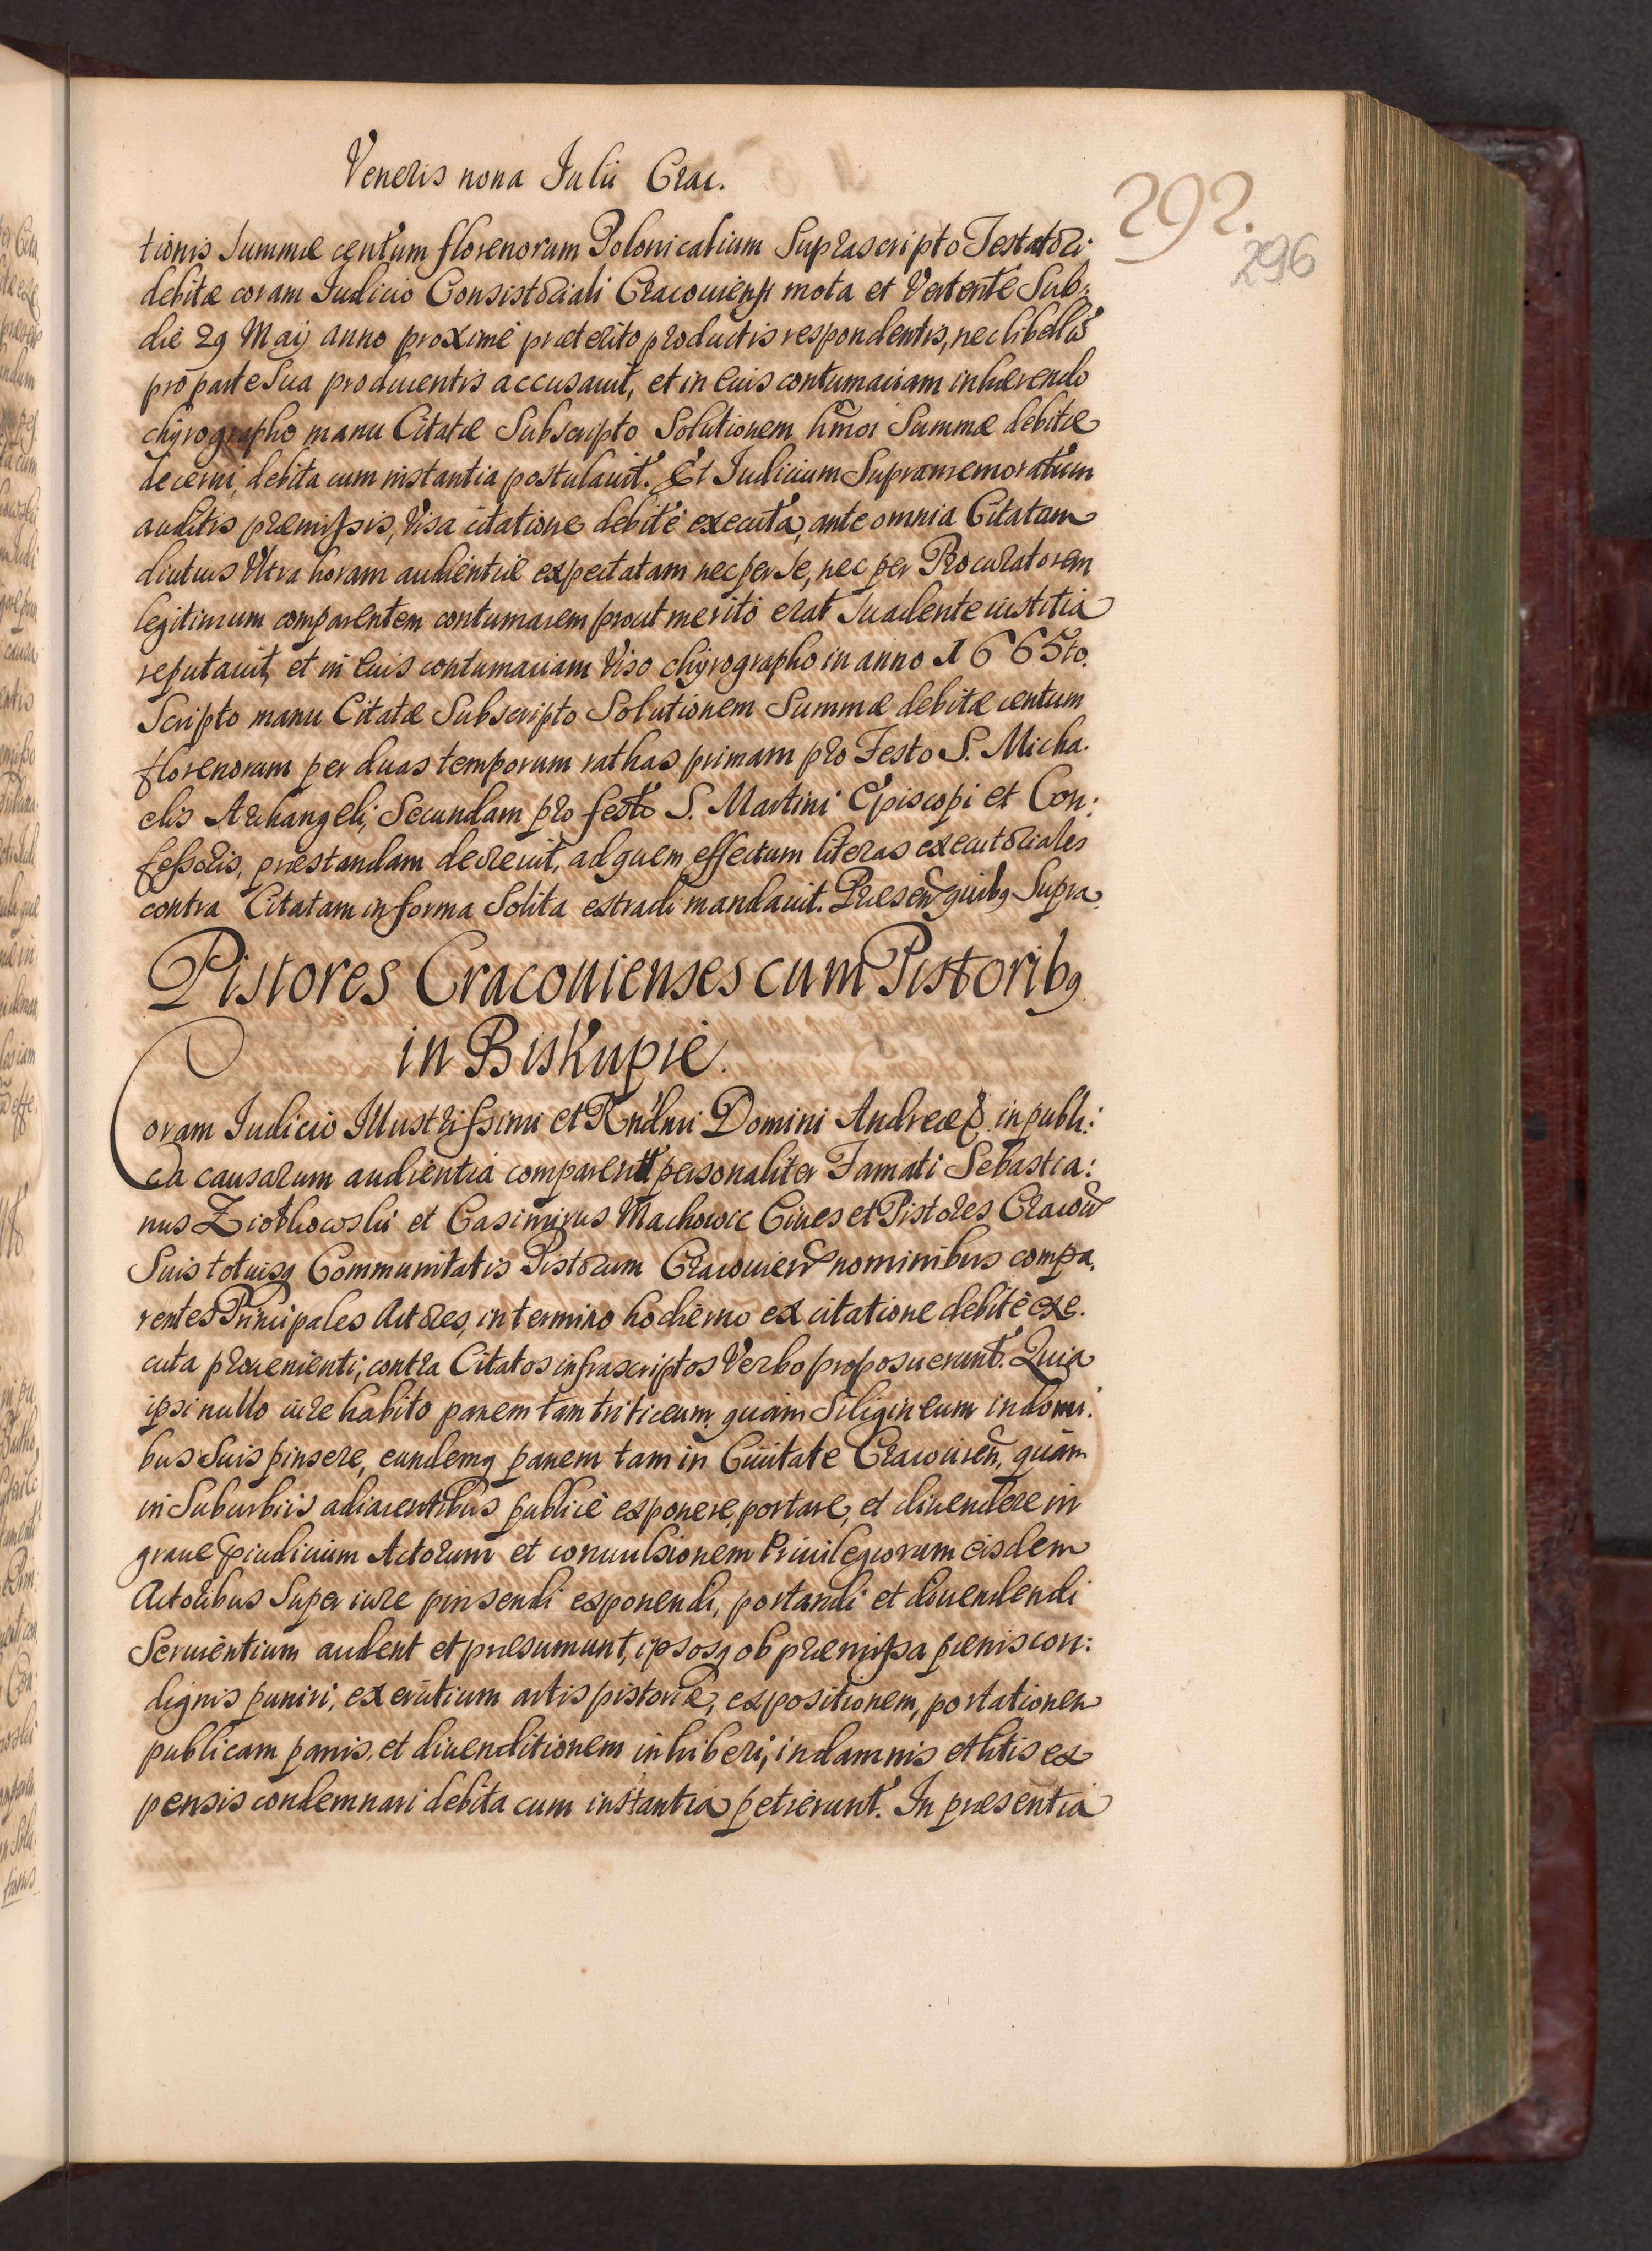 Veneris nona Iulii Crac.
292.
296
tionis Summæ centum florenorum Polonicalium Suprascripto Testatori
debitæ coram Iudicio Consistoriali Cracouiensi mota et Vertente Sub:
die 29 Maij anno proximè præterito productis respondentis, nec libellis
pro parte Sua producentis accusauit, et in Euis contumaciam inhærendo
chyrographo manu Citatæ Subscripto Solutionem hmoi Summæ debitæ
decerni, debita cum instantia postulauit. Et Iudicium Supramemoratum
auditis præmissis, Visa citatione debitè executa, ante omnia Citatam
diutius Vltra horam audientiæ expectatam nec per Se, nec per Procuratorem
legitimum comparentem contumacem prout meritò erat Suadente iustitia
reputauit, et in Euis contumaciam Viso chyrographo in anno 1665to.
Scripto manu Citatæ Subscripto Solutionem Summæ debitæ centum
florenorum per duas temporum rathas primam pro Festo S. Micha.
elis Archangeli, Secundam pro festo S. Martini Episcopi et Con:
fessoris, præstandam decreuit, ad quem effectum literas executoriales
contra Citatam in forma Solita extradi mandauit. Præsen quibq Supra
Pistores Cracouienses cum Pistoribq
in Biskupie.
Coram Iudicio Illustrissimi et Rndmi Domini Andreæ in publi:
ca causarum audientia comparentt personaliter Famati Sebastia:
nus Ziotkowski et Casimirus Machowic Ciues et Pistores Cracou
Suis totiusq Communitatis Pistorum Cracouien nominibus compa.
rentes Principales Actores, in termino hodierno ex citatione debitè exe.
cuta prouenienti; contra Citatos infrascriptos Verbo proposuerunt. Quia
ipsi nullo iure habito panem tam triticeum quàm Siligineum in domi.
bus Suis pinsere, eundemq panem tam in Ciuitate Cracouien, quàm
in Suburbiis adiacentibus publicè exponere, portare, et diuendere in
graue piudicium Actorum et conuulsionem Priuilegiorum eisdem
Actoribus Super iure pinsendi exponendi, portandi et diuendendi
Seruientium audent et præsumunt, ipsosq ob præmissa pænis con:
dignis puniri, exercitium artis pistoriæ, expositionem, portationem
publicam panis, et diuenditionem inhiberi, in damnis et litis ex
pensis condemnari debita cum instantia petierunt. In præsentia